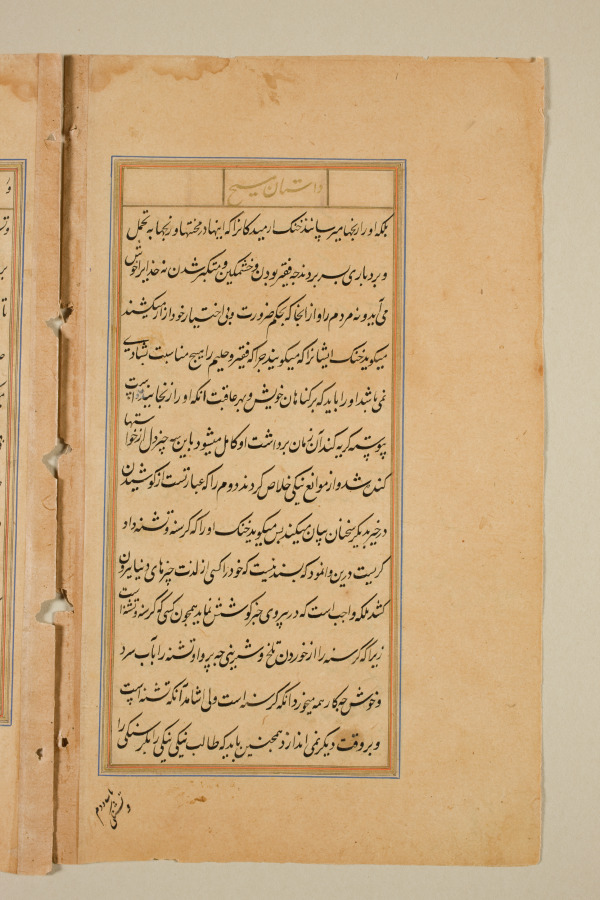 داستان مسیح
بلکه او را رنجها میرسانند خنک ارمیدکانرا که اینها در محنتها و رنجها به تحمل
و بردباری بسر بردند چه فقیر بودن و خشمکین و متکبر شدن نه خدایرا خوش
می آید و نه مردم را و از انجا که بحکم ضرورت و بی اختیار خود از
میکوید خنک ایشانرا که میکویند چرا که فقیر و حلیم را هیچ مناسبت بشادی
نمی باشد او را باید که بر کناهان خویش و بهر عاقبت انکه او را زنجا
پیوسته کریه کند آن زمان برداشت او کامل میشود باین سه چیز دل از خواستها
کنده شد و از موانع نیکی خلاص کردند دوم را که عبارتست از کوشیدن
در خیر بدیکر سخنان بیان میکند پس میکوید خنک او را که کرسنه و تشنه داد
کریست درین وانمود که بسند نیست که خود را کسی از لذت چیزهای دنیا بیرون
کشد بلکه واجب است که در پیروی خیر کوشش نماید همچون کسی کو کرسنه و تشنه است
زیرا که کرسنه را از خوردن تلخ و شیرینی چه پروا و تشنه را بآب سرد
و خوش چه کار همه میخورد انکه کرسنه است ولی اشامد آنکه تشنه است
و بر وقت دیکر نمی اندازد همچنین باید که طالب نیکی نیکی را مکر سنکی را
و تشنکی